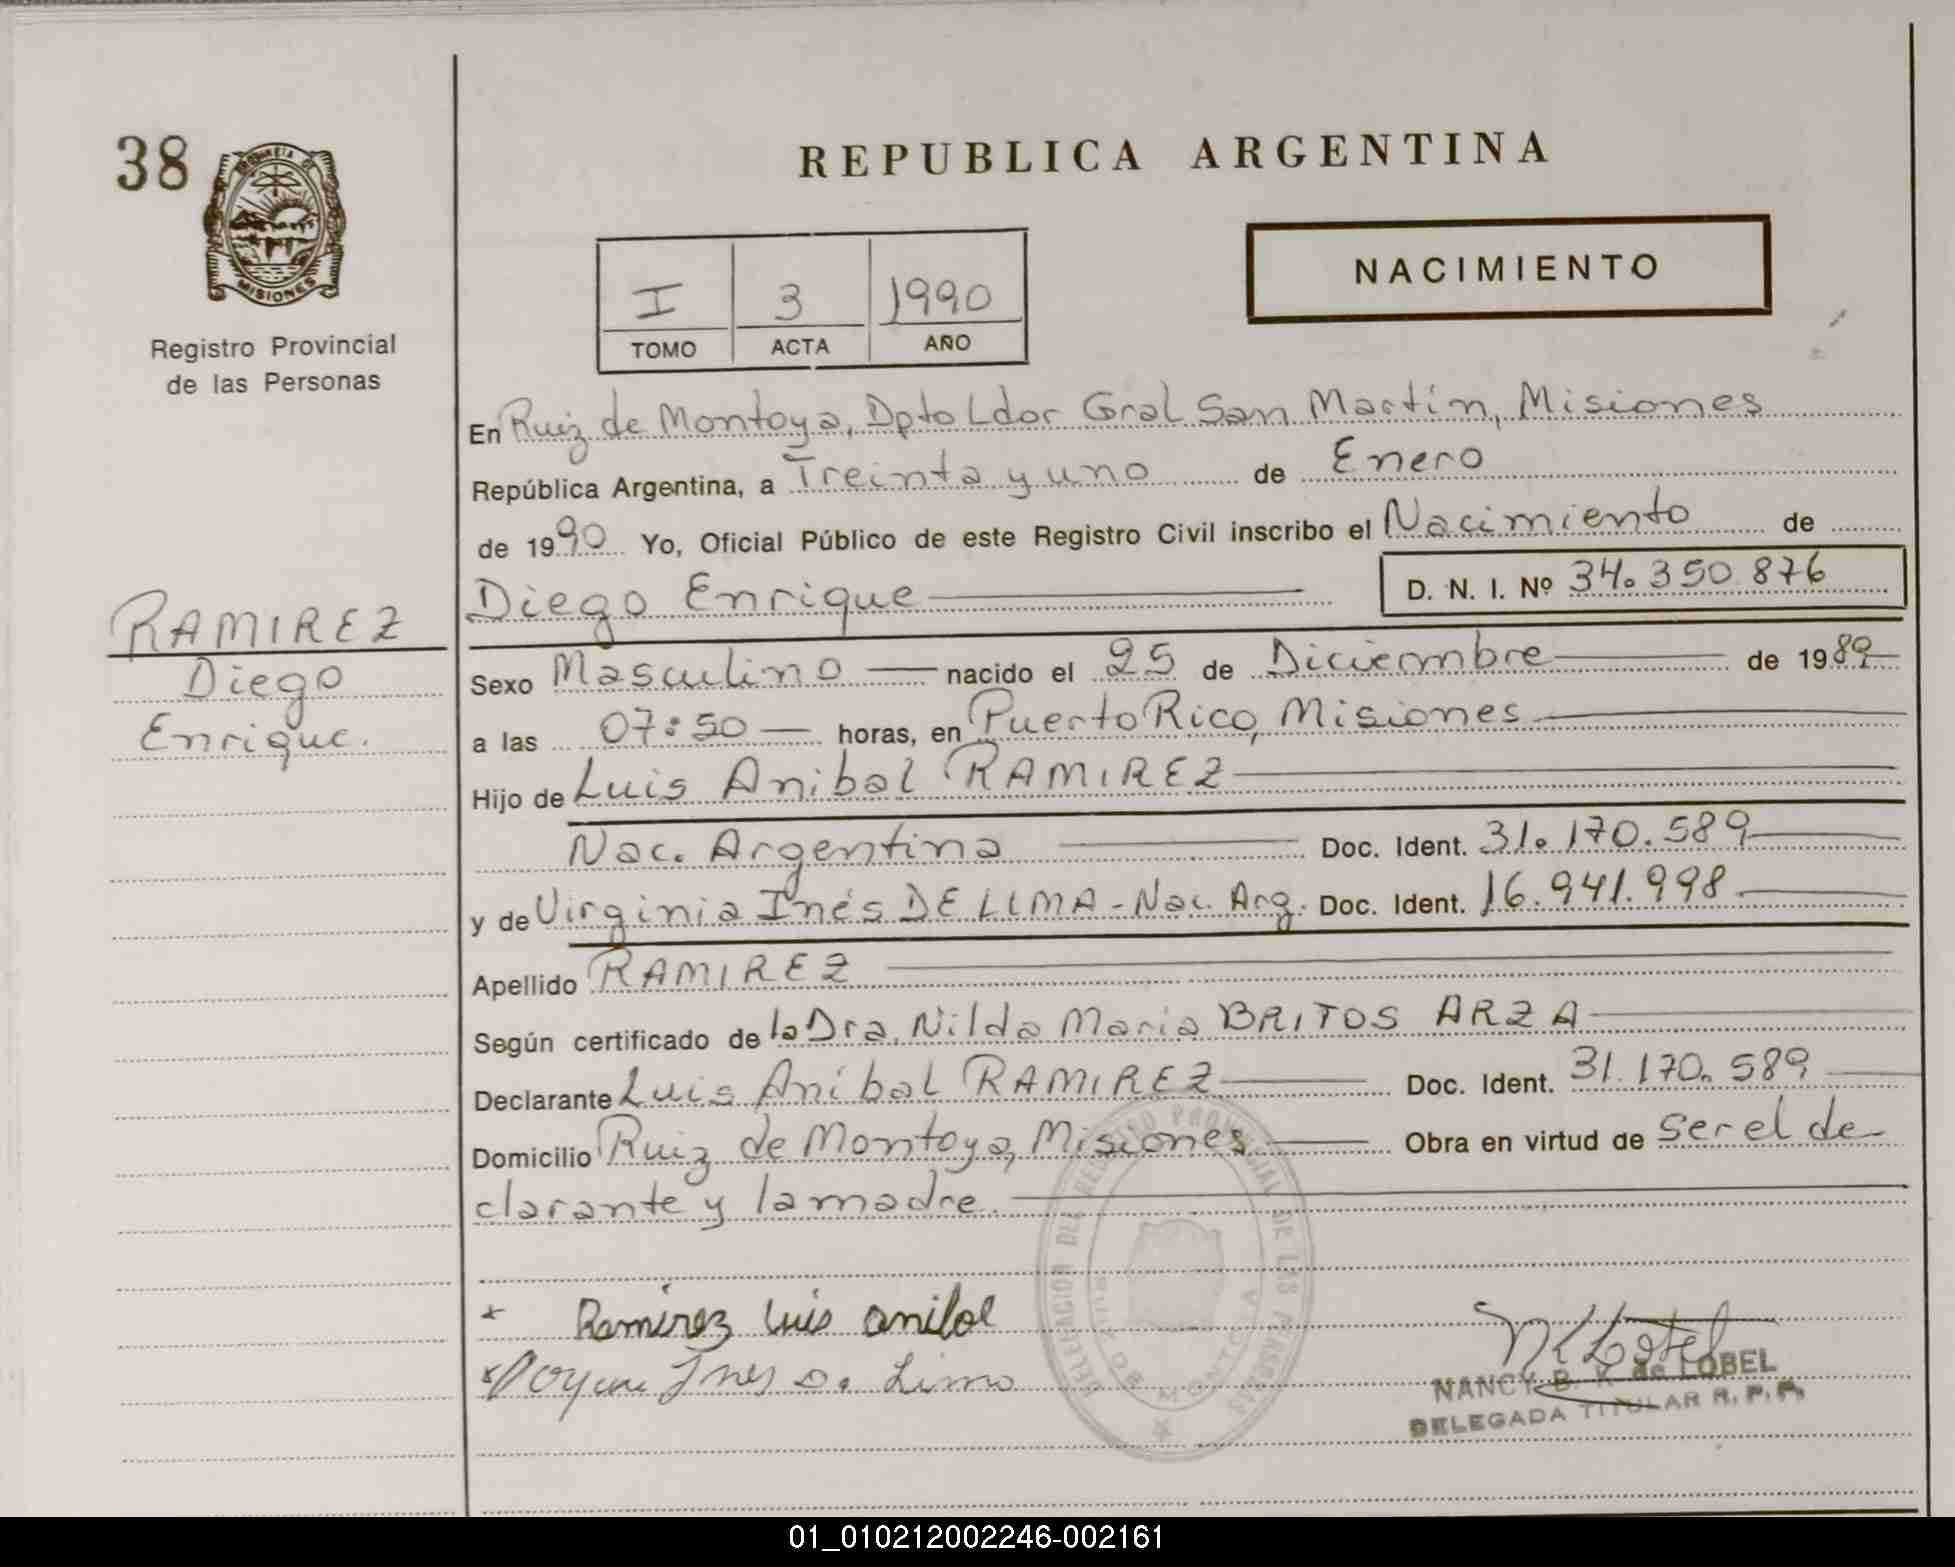 38
PROVINCIA DE
MISIONES
Registro Provincial
de las Personas
REPUBLICA ARGENTINA
NACIMIENTO
I 3 1990
TOMO ACTA AÑO
En Ruiz de Montoya, Dpto Ldor Gral San Martín, Misiones
República Argentina, a Treinta y uno de Enero
de 1990 Yo, Oficial Público de este Registro Civil inscribo el Nacimiento de
Diego Enrique D. N. I. Nº 34.350.876
RAMIREZ
Diego
Enrique.
Sexo Masculino nacido el 25 de Diciembre de 1989
a las 07:50 horas, en Puerto Rico, Misiones
Hijo de Luis Anibal RAMIREZ
Nac. Argentina Doc. Ident. 31.170.589
y de Virginia Inés DE LIMA - Nac. Arg. Doc. Ident. 16.941.998
Apellido RAMIREZ
Según certificado de la Dra. Nilda Maria BRITOS ARZA
Declarante Luis Aníbal RAMIREZ Doc. Ident. 31.170.589
Domicilio Ruiz de Montoya, Misiones Obra en virtud de ser el de
clarante y la madre.
DELEGACION DEL REGISTRO PROVINCIAL DE LAS PERSONAS
RUIZ DE MONTOYA
Ramirez Luis anibal
Ines D. Lima
NANCY B. K. de LOBEL
DELEGADA TITULAR R. P. P.
01_010212002246-002161